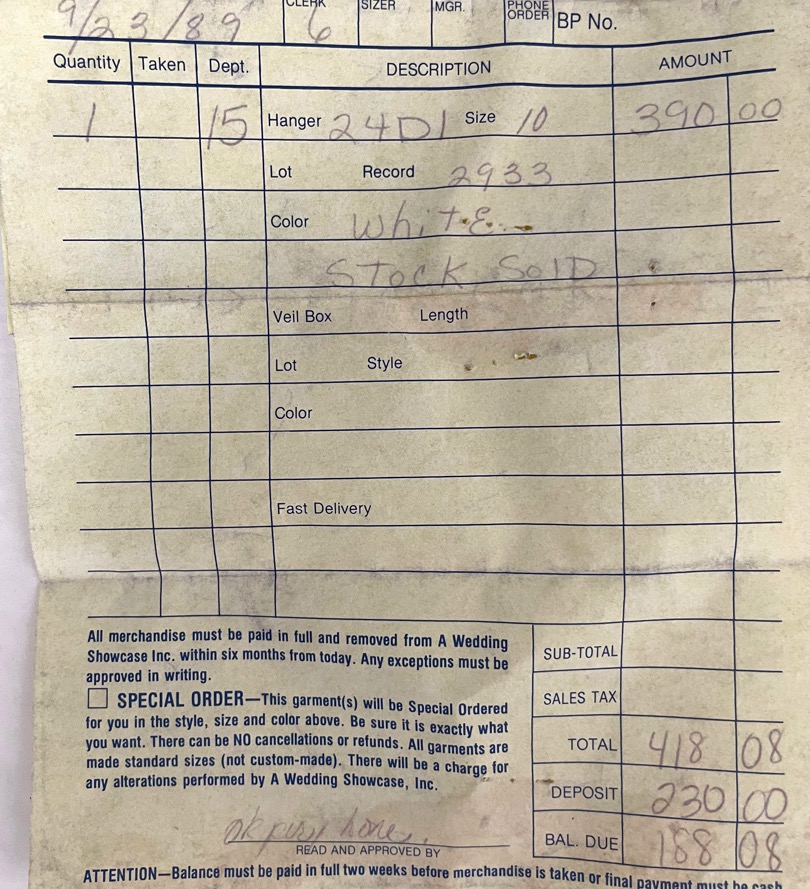 9/23/89 CLERK 6 SIZER MGR. PHONE ORDER BP No.
Quantity Taken Dept. DESCRIPTION AMOUNT
1 15 Hanger 24D1 Size 10 390 00
Lot Record 2933
Color White
Stock Sold
Veil Box Length
Lot Style
Color
Fast Delivery
All merchandise must be paid in full and removed from A Wedding
Showcase Inc. within six months from today. Any exceptions must be
approved in writing.
SPECIAL ORDER—This garment(s) will be Special Ordered
for you in the style, size and color above. Be sure it is exactly what
you want. There can be NO cancellations or refunds. All garments are
made standard sizes (not custom-made). There will be a charge for
any alterations performed by A Wedding Showcase, Inc.
SUB-TOTAL
SALES TAX
TOTAL 418 08
DEPOSIT 230 00
BAL. DUE 188 08
ok
READ AND APPROVED BY
ATTENTION—Balance must be paid in full two weeks before merchandise is taken or final payment must be cash